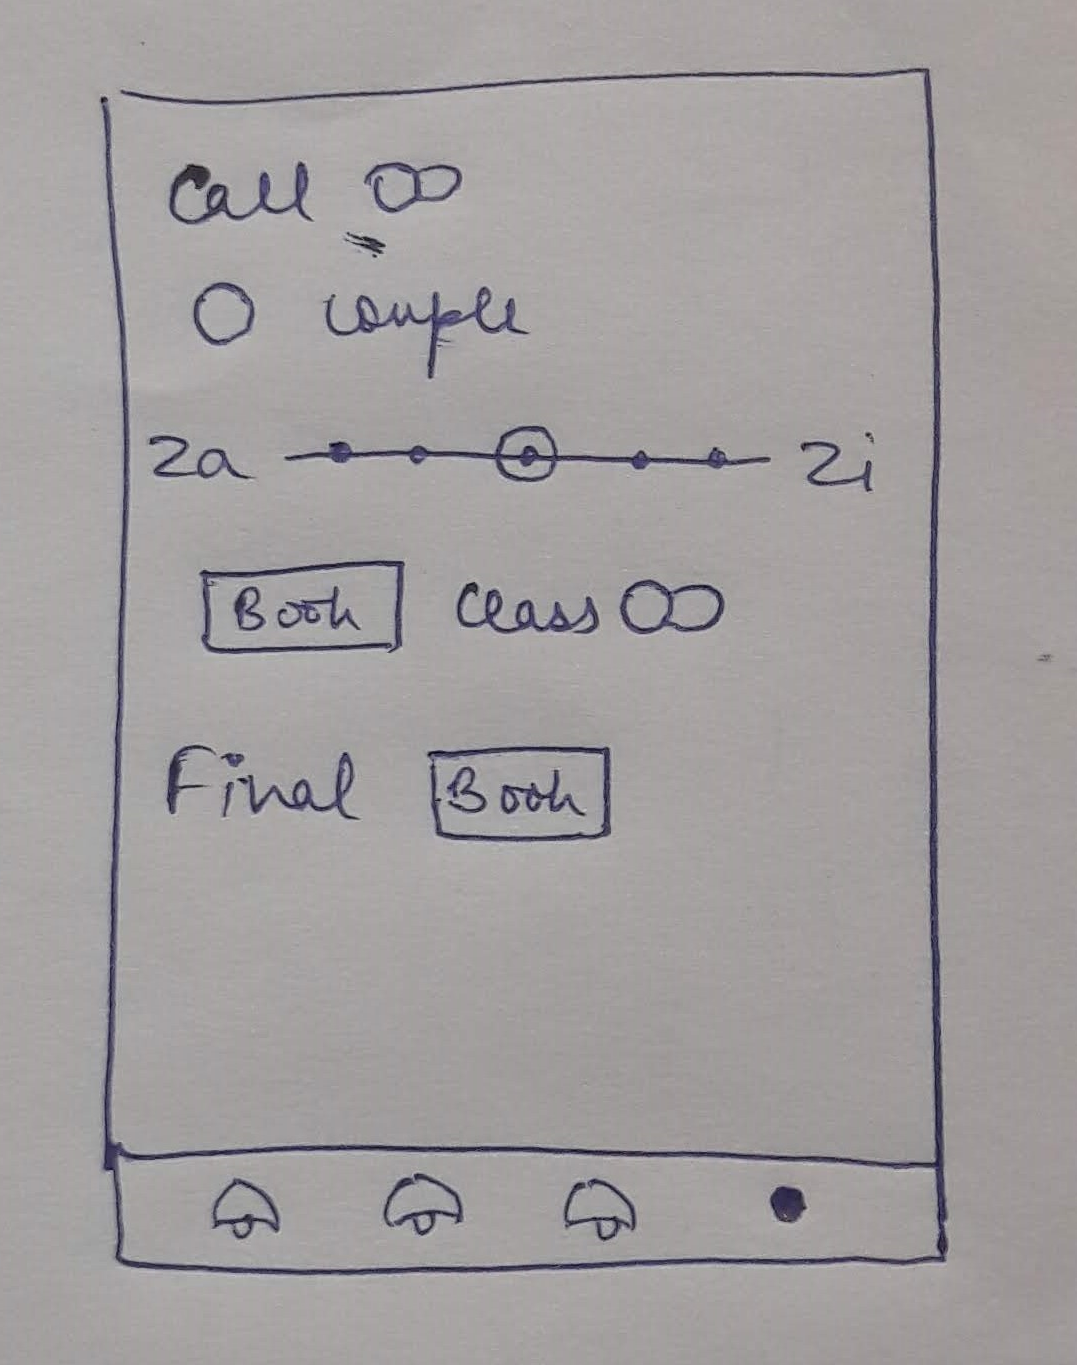 Call
couple
2a 2i
Book Class
Final Book